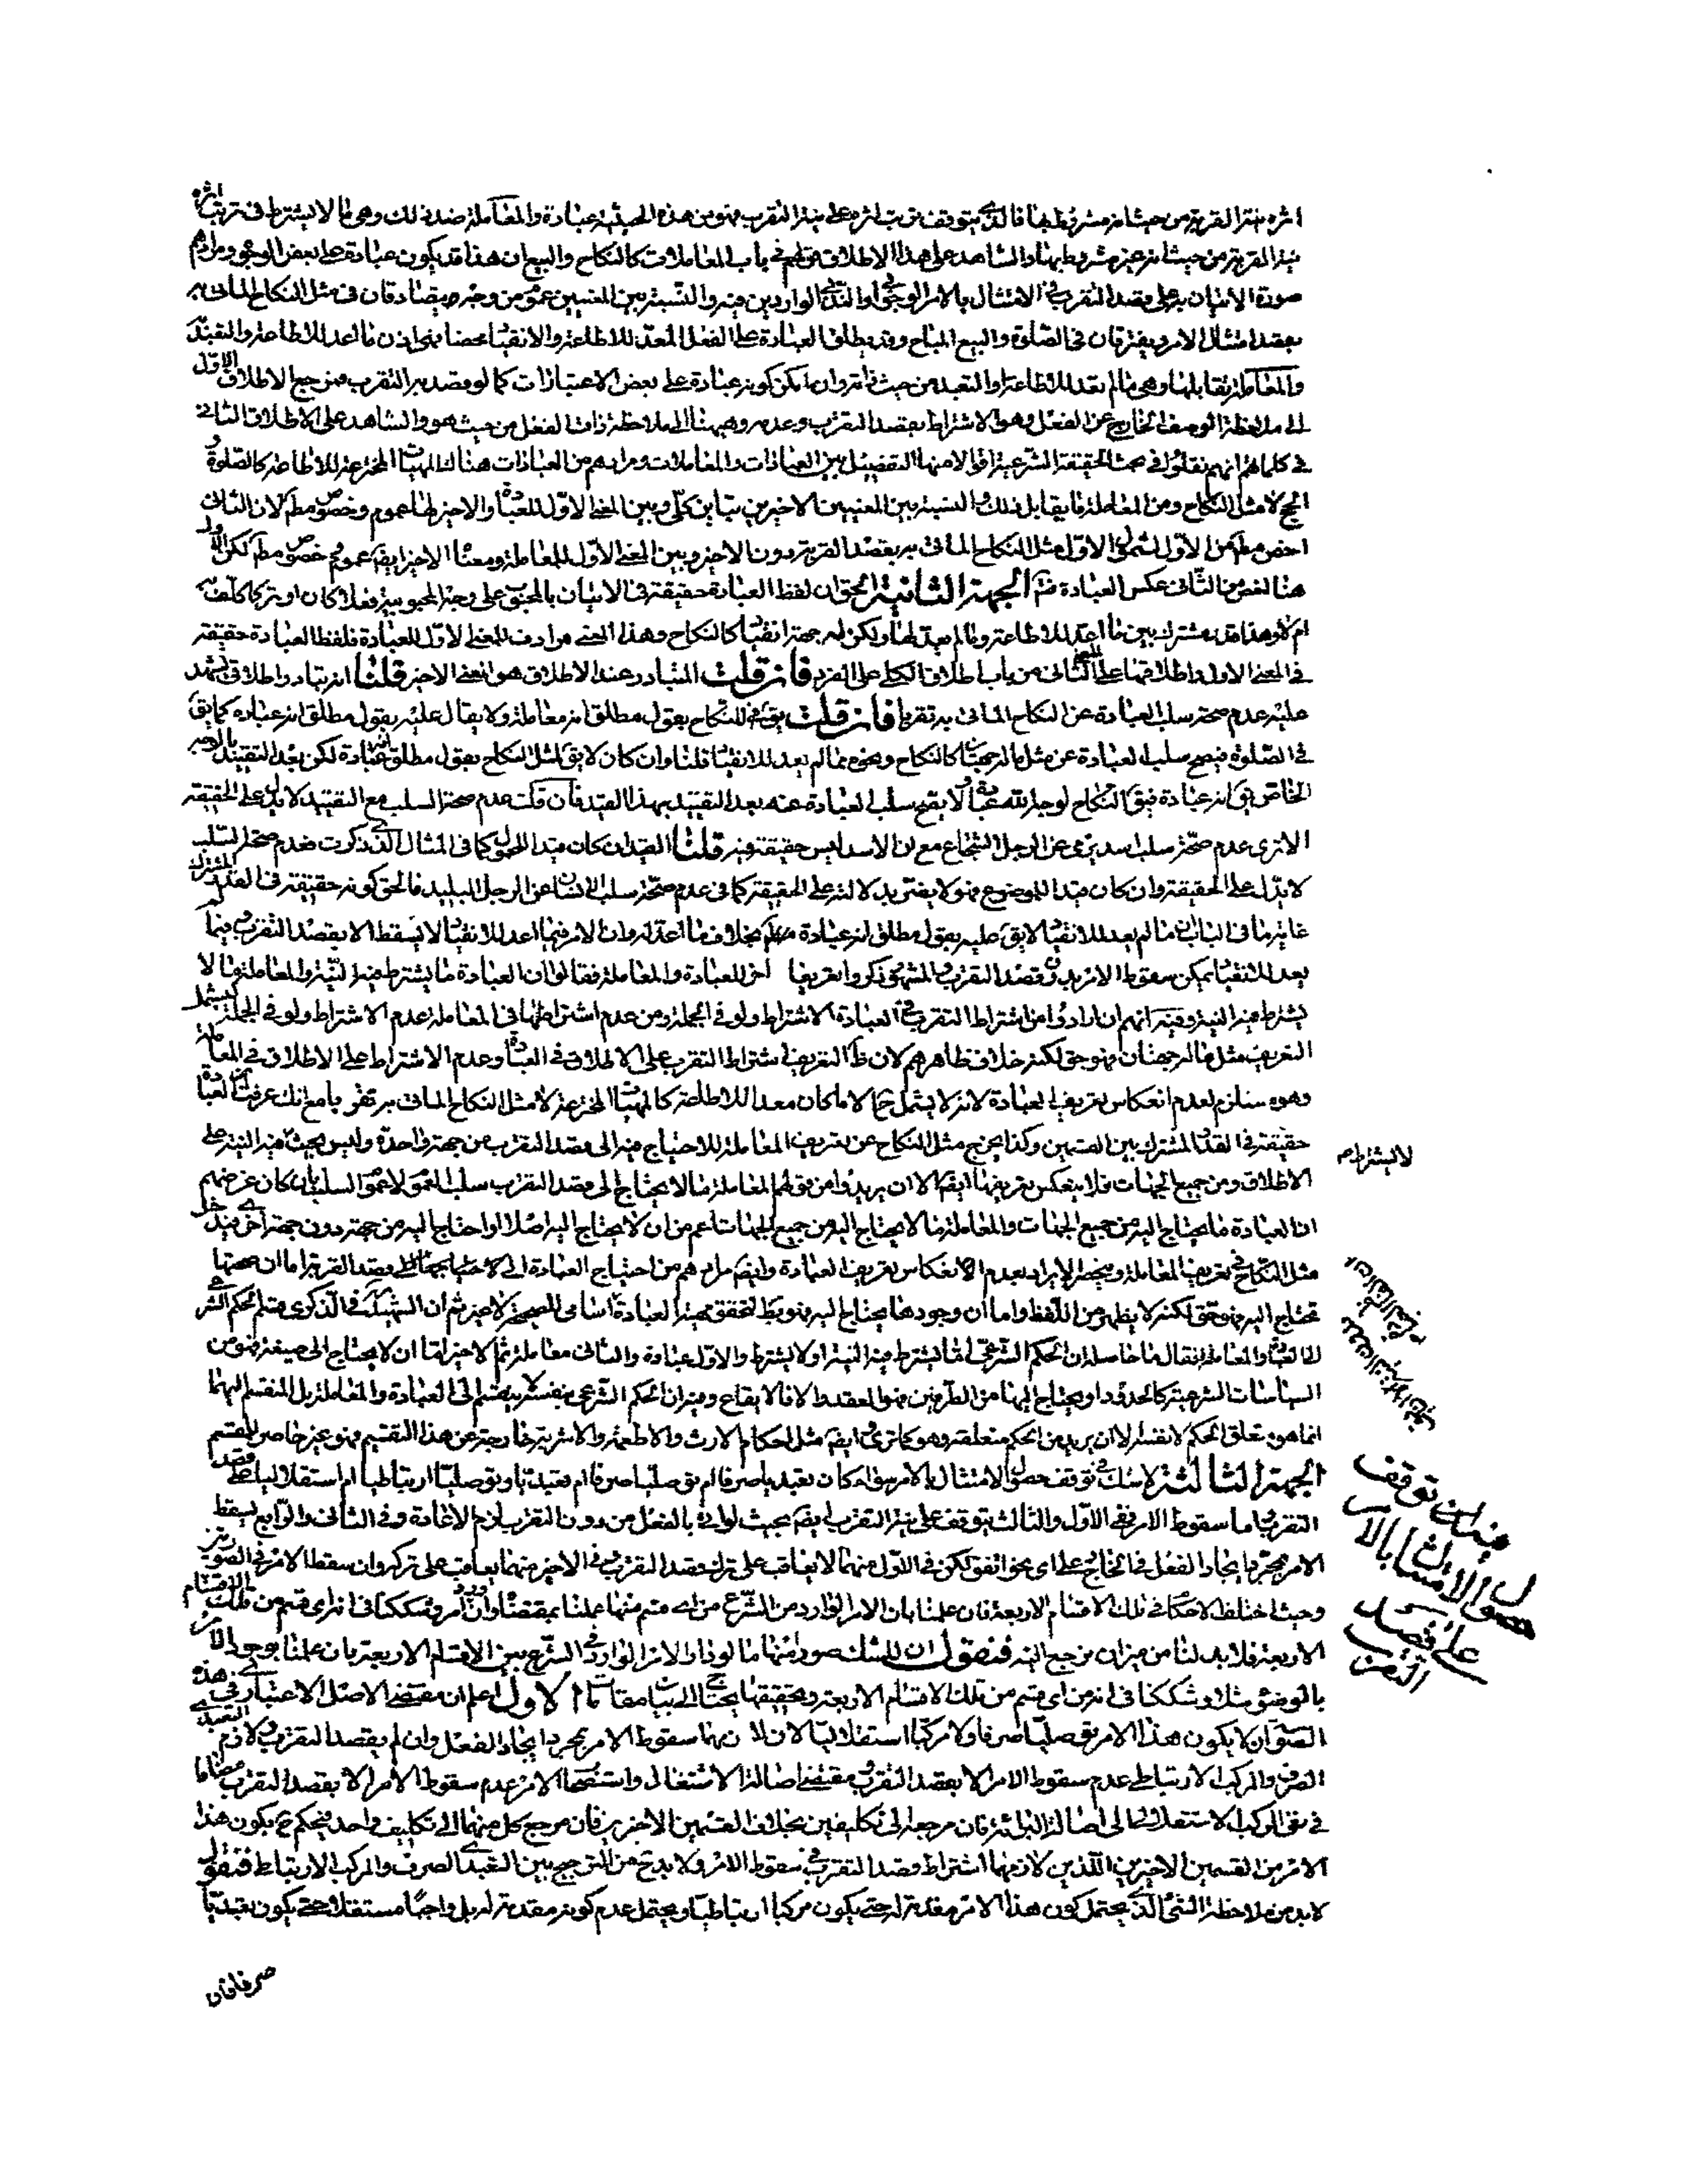 اثره بنية القربة من حيث انه مشروط بها فالذي يتوقف ترتب اثره على نية التقرب فهو من هذه الحيثية عبادة والمعاملة ضد ذلك وهي ما لا يشترط في ترتب اثره
نية القربة من حيث انه غير مشروط بها والشاهد على هذا الاطلاق قولهم في باب المعاملات كالنكاح والبيع ان هذا قد يكون عبادة على بعض الوجوه ومرادهم
صورة الاتيان به على قصد التقرب في الامتثال بالامر الوجوبي او الندبي الواردين فيه والنسبة بين المعنيين عموم من وجه يتصادقان في مثل النكاح الماتى به
بقصد امتثال الامر ويفترقان في الصلوة والبيع المباح وقد يطلق العبادة على الفعل المعدّ للاطاعة والانقياد محضا فهي اذن ما اعد للاطاعة والتعبد
والمعاملة يقابلها وهي ما لم يعد للاطاعة والتعبد من حيث ذاته وان امكن كونه عبادة على بعض الاعتبارات كما لو قصد به التقرب فمرجع الاطلاق الاول
الى ملاحظة الوصف الخارج عن الفعل وهو الاشتراط بقصد التقرب وعدمه وهيهنا الى ملاحظة ذات الفعل من حيث هو والشاهد على الاطلاق الثاني
في كلماتهم انهم نقلوا في بحث الحقيقة الشرعية اقوالا منها التفصيل بين العبادات والمعاملات ومرادهم من العبادات هناك المهيات المخترعة للاطاعة كالصلوة و
الحج لا مثل النكاح ومن المعاملة ما يقابل ذلك والنسبة بين المعنيين الاخيرين تباين كلّي وبين المعنى الاول للعبادة والاخير لها عموم وخصوص مطلق لان الثاني
اخص مطلقا من الاول لشمول الاول مثل النكاح الماتى به بقصد القربة دون الاخير وبين المعنى الاول للمعاملة ومعناها الاخير ايضا عموم وخصوص مطلق لكن الاول
هنا اخص من الثاني عكس العبادة ثم الجهة الثانية الحق ان لفظ العبادة حقيقة في الاتيان بالمحبوب على وجه المحبوبية فعلا كان او تركا كلفة
ام لا وهذا قدر مشترك بين ما اعد للاطاعة وما لم يعد لها ولكن له جهة انقياد كالنكاح وهذا المعنى مرادف للمعنى الاول للعبادة فلفظ العبادة حقيقة
في المعنى الاول واطلاقها على المعنى الثاني من باب اطلاق الكلي على الفرد فان قلت المتبادر عند الاطلاق هو المعنى الاخير قلنا انه تبادر اطلاقي يشهد
عليه عدم صحة سلب العبادة عن النكاح الماتى به تقربا فان قلت يقال في النكاح بقول مطلق انه معاملة ولا يقال عليه بقول مطلق انه عبادة كما يقال
في الصلوة فيصح سلب العبادة عن مثل ما النكاح ونحوه مما لم يعد للانقياد قلنا وان كان لا يقال لمثل النكاح بقول مطلق انه عبادة لكن بعد التقييد بالوجه
الخاص يقال انه عبادة فيقال النكاح لوجه الله عبادة ولا يصح سلب العبادة عنه بعد التقييد بهذا القيد فان قلت عدم صحة السلب مع التقييد لا يدل على الحقيقة
الا ترى عدم صحة سلب اسد يرمي عن الرجل الشجاع مع ان الاسد ليس حقيقة فيه قلنا القيد ان كان قيدا للمحمول كما في المثال الذي ذكرت فعدم صحة السلب
لا يدل على الحقيقة وان كان قيدا للموضوع فهو لا يضر بدلالته على الحقيقة كما في عدم صحة سلب الانسان عن الرجل البليد فالحق كونه حقيقة في القدر المشترك
غاية ما في الباب ان ما لم يعد للانقياد لا يقال عليه بقول مطلق انه عبادة بخلاف ما اعد له وان الامر فيما اعد للانقياد لا يسقط الا بقصد التقرب وفيما لم
يعد للانقياد يمكن سقوط الامر بدون قصد التقرب والمشهور ذكروا تعريفا اخر للعبادة والمعاملة فقالوا ان العبادة ما يشترط فيها النية والمعاملة ما لا
يشترط فيه النية وفيه انهم ان ارادوا من اشتراط التقرب في العبادة الاشتراط ولو في الجملة ومن عدم اشتراطها في المعاملة عدم الاشتراط ولو في الجملة ليشمل
التعريف مثل ما فهو حق لكنه خلاف ظاهرهم لان ظاهر التعريف اشتراط التقرب على الاطلاق في العبادة وعدم الاشتراط على الاطلاق في المعاملة
وهو مستلزم لعدم انعكاس تعريف العبادة لانه لا يشمل ح الا ما كان معدا للاطاعة كالمهيات المخترعة لا مثل النكاح الماتى به تقربا مع انك عرفت ان العبادة
حقيقة في القدر المشترك بين القسمين وكذا يخرج مثل النكاح عن تعريف المعاملة للاحتياج فيه الى قصد التقرب من جهة واحدة وليس بحيث فيه النية على
الاطلاق ومن جميع الجهات فلا ينعكس تعريفها ايضا الا ان يريدوا من قولهم المعاملة ما لا يحتاج الى قصد التقرب سلب العموم لا عموم السلب بان كان غرضهم
ان العبادة ما يحتاج اليه من جميع الجهات والمعاملة ما لا يحتاج اليه من جميع الجهات اعم من ان لا يحتاج اليه اصلا او احتاج اليه من جهة دون جهة اخرى فيدخل
مثل النكاح في تعريف المعاملة وينحصر الايراد بعدم الانعكاس بتعريف العبادة وايضا مرادهم من احتياج العبادة الى قصد القربة اما ان صحتها
تحتاج اليه فهو حق لكنه لا يظهر من اللفظ واما ان وجودها يحتاج اليه فهو ثم ان الشهيد في الذكرى قسم الحكم الشرعي
الى العبادة والمعاملة فقال ما حاصله ان الحكم الشرعي اما يشترط فيه النية او لا يشترط والاول عبادة والثاني معاملة ثم الاخير اما ان لا يحتاج الى صيغة فهو من
السياسات الشرعية كالحدود او يحتاج اليها من الطرفين فهو العقد والا فالايقاع وفيه ان الحكم الشرعي بنفسه لا ينقسم الى العبادة والمعاملة بل المنقسم اليهما
انما هو متعلق الحكم لا نفسه الا ان يريد من الحكم متعلقه وهو كما ترى وايضا مثل احكام الارث والاطعمة والاشربة خارجة عن هذا التقسيم فهو غير حاصر للمقسم
الجهة الثالثة لا شك في توقف حصول الامتثال بالامر سواء كان تعبديا صرفا ام توصليا صرفا ام تعبديا وتوصليا ارتباطيا ام استقلاليا على قصد
التقرب واما سقوط الامر ففي الاول والثالث يتوقف على نية التقرب ايضا بحيث لو اتى بالفعل من دون التقرب لزم الاعادة وفي الثاني والرابع يسقط
الامر بمجرد ايجاد الفعل في الخارج على اي نحو اتفق لكن في الاول منهما لا يعاقب على ترك قصد التقرب وفي الاخير منهما يعاقب على تركه وان سقط الامر في الصورتين
وحيث اختلف الاحكام في تلك الاقسام الاربعة فان علمنا بان الامر الوارد من الشرع من اي قسم منها عملنا بمقتضاه وان ورد امر وشككنا في انه اي قسم من تلك الاقسام
الاربعة فلا بد لنا من ميزان نرجع اليه فنقول ان للشك صورا منها ما لو دار الامر الوارد في الشرع بين الاقسام الاربعة بان علمنا بوجود الامر
بالوضوء مثلا وشككنا في انه من اي قسم من تلك الاقسام الاربعة وتحقيقها يحتاج الى بيان مقامات الاول اعلم ان مقتضى الاصل الاعتباري في هذه
الصورة ان لا يكون هذا الامر توصليا صرفا ولا مركبا استقلاليا لان لازمهما سقوط الامر بمجرد ايجاد الفعل وان لم يقصد التقرب ولازم التعبدي
الصرف والمركب الارتباطي عدم سقوط الامر الا بقصد التقرب ومقتضى اصالة الاشتغال واستصحاب الامر عدم سقوط الامر الا بقصد التقرب مضافا
في نفي المركب الاستقلالي الى اصالة البرائة فان مرجعه الى تكليفين بخلاف القسمين الاخيرين فان مرجع كل منهما الى تكليف واحد فيحكم ح بكون هذا
الامر من القسمين الاخيرين اللذين لازمهما اشتراط قصد التقرب في سقوط الامر ولا بد ح من الترجيح بين التعبدي الصرف والمركب الارتباطي فنقول
لا بد من ملاحظة الشيء الذي يحتمل كون هذا الامر مقدمة له حتى يكون مركبا ارتباطيا ويحتمل عدم كونه مقدمة له بل واجبا مستقلا حتى يكون تعبديا
لا يشترط م
توقف
حصول الامتثال بالامر
على قصد
التقرب
صرفا فان